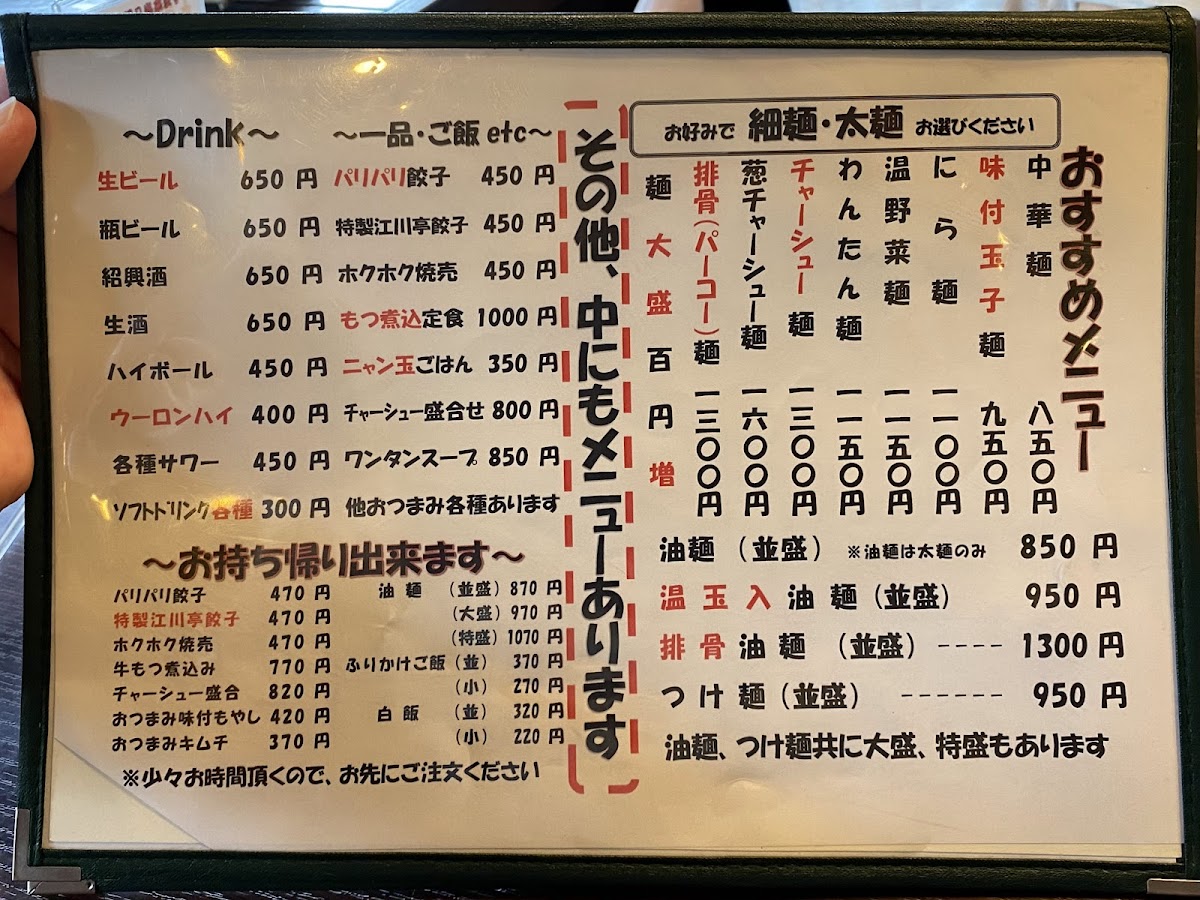 おすすめメニュー
お好みで 細麺・太麺 お選びください
中華麺 八五〇円
味付玉子麺 九五〇円
にら麺 一一〇〇円
温野菜麺 一一五〇円
わんたん麺 一一五〇円
チャーシュー麺 一三〇〇円
葱チャーシュー麺 一六〇〇円
排骨(パーコー)麺 一三〇〇円
麺大盛百円増
油麺(並盛) ※油麺は太麺のみ 850円
温玉入油麺(並盛) 950円
排骨油麺(並盛)---- 1300円
つけ麺(並盛)------- 950円
油麺、つけ麺共に大盛、特盛もあります
その他、中にもメニューあります
～Drink～
生ビール 650円
瓶ビール 650円
紹興酒 650円
生酒 650円
ハイボール 450円
ウーロンハイ 400円
各種サワー 450円
ソフトドリンク各種 300円
～一品・ご飯 etc～
パリパリ餃子 450円
特製江川亭餃子 450円
ホクホク焼売 450円
もつ煮込定食 1000円
ニャン玉ごはん 350円
チャーシュー盛合せ 800円
ワンタンスープ 850円
他おつまみ各種あります
～お持ち帰り出来ます～
パリパリ餃子 470円
特製江川亭餃子 470円
ホクホク焼売 470円
牛もつ煮込み 770円
チャーシュー盛合 820円
おつまみ味付もやし 420円
おつまみキムチ 370円
油麺 (並盛) 870円
(大盛) 970円
(特盛) 1070円
ふりかけご飯 (並) 370円
(小) 270円
白飯 (並) 320円
(小) 220円
※少々お時間頂くので、お先にご注文ください